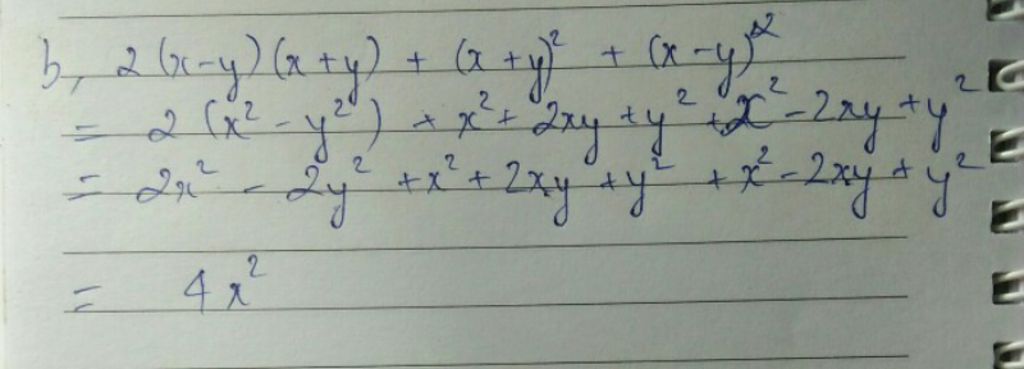 b, 2(x-y)(x+y) + (x+y)² + (x-y)²
= 2(x²-y²) + x² + 2xy + y² + x² - 2xy + y²
= 2x² - 2y² + x² + 2xy + y² + x² - 2xy + y²
= 4x²